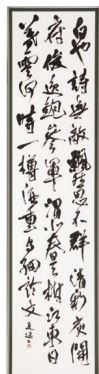 白也詩無敵飄然思不群清新庾開
府俊逸鮑參軍渭北春天樹江東日
暮雲何時一樽酒重與細論文